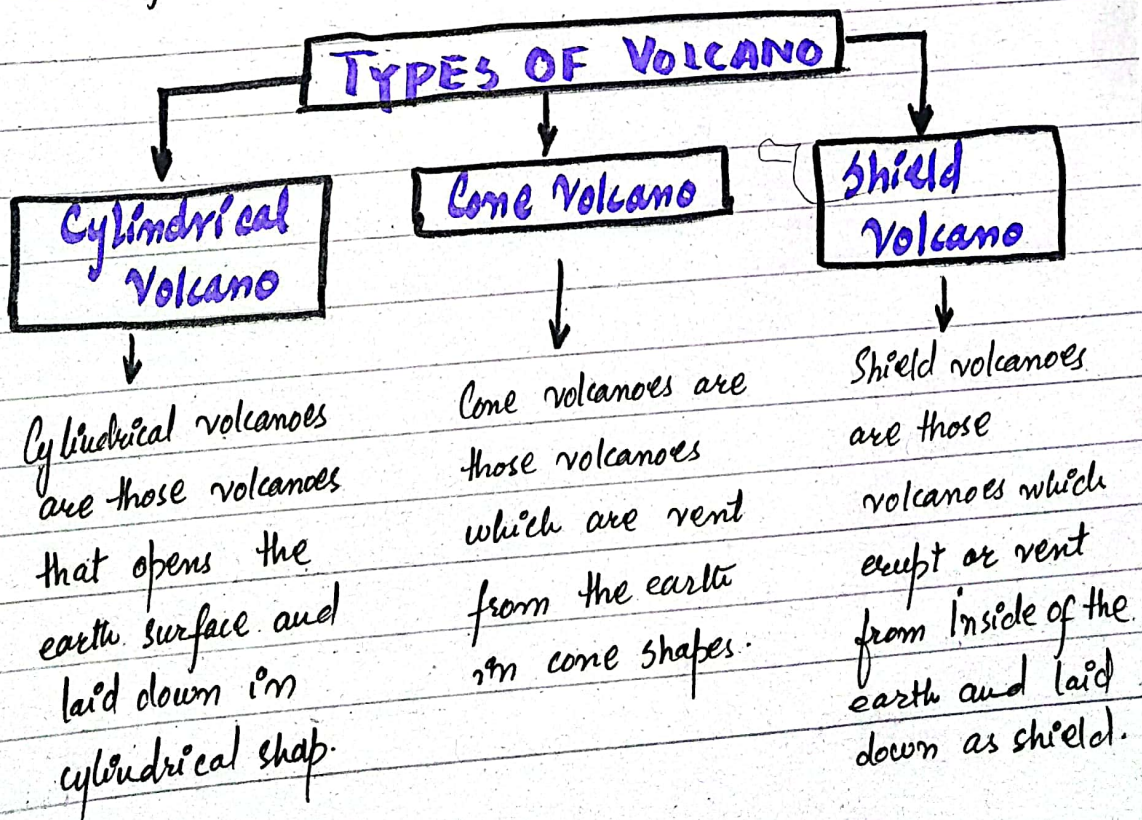 TYPES OF VOLCANO
Cylindrical
Volcano
Cone Volcano
Shield
Volcano
Cylindrical volcanoes
are those volcanoes
that opens the
earth surface and
laid down in
cylindrical shap.
Cone volcanoes are
those volcanoes
which are vent
from the earth
in cone shapes.
Shield volcanoes
are those
volcanoes which
erupt or vent
from inside of the
earth and laid
down as shield.